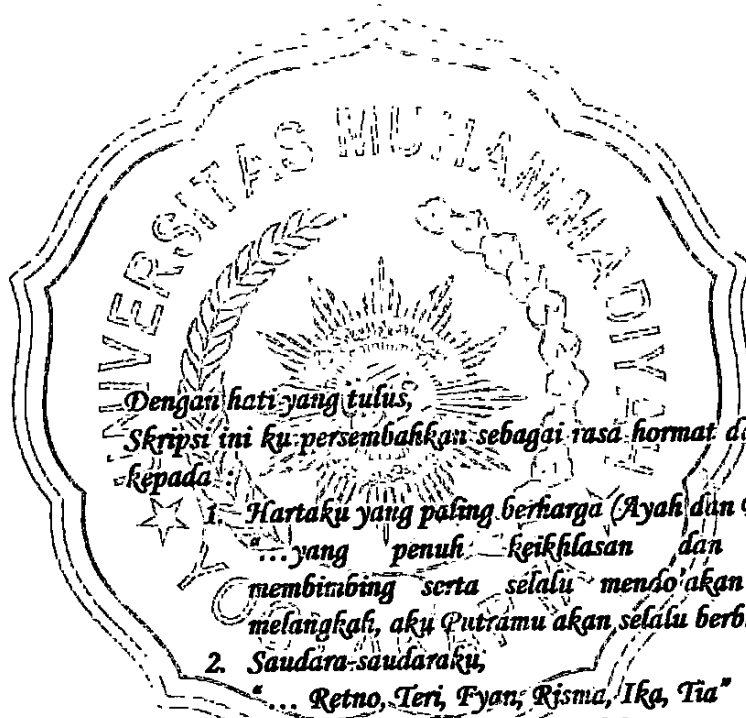 UNIVERSITAS MUHAMMADIYAH
YOGYAKARTA
Dengan hati yang tulus,
Skripsi ini ku persembahkan sebagai rasa hormat
kepada :
1. Hartaku yang paling berharga (Ayah dan
"...yang penuh keikhlasan dan
membimbing serta selalu mendo'akan
melangkah, aku Putramu akan selalu
2. Saudara-saudaraku,
"... Retno, Teri, Fyan, Risma, Ika, Tia"